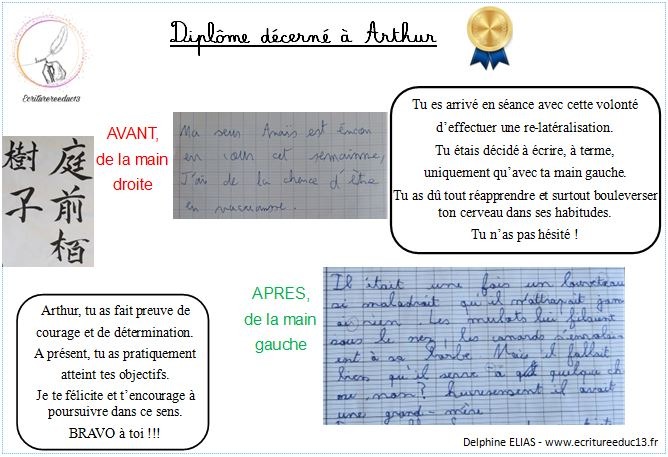 Diplôme décerné à Arthur
Ecriturereeduc13
庭前栢
樹子
AVANT,
de la main
droite
Ma seur Anaïs est encon
en cour cet semainne,
J'ai de la chance d'être
en vacanse.
Tu es arrivé en séance avec cette volonté
d'effectuer une re-latéralisation.
Tu étais décidé à écrire, à terme,
uniquement qu'avec ta main gauche.
Tu as dû tout réapprendre et surtout bouleverser
ton cerveau dans ses habitudes.
Tu n'as pas hésité !
APRES,
de la main
gauche
Il était une fois un louveteau
si maladroit qu'il n'attrapait jam
ais rien Les mulots lui filaient
sous le nez, les canards s'envolai
ent à sa barbe Mais il fallait
bien qu'il serve à quelque ch
ose, non? hureusement il avait
une grand-mère
Arthur, tu as fait preuve de
courage et de détermination.
A présent, tu as pratiquement
atteint tes objectifs.
Je te félicite et t'encourage à
poursuivre dans ce sens.
BRAVO à toi !!!
Delphine ELIAS - www.ecritureeduc13.fr